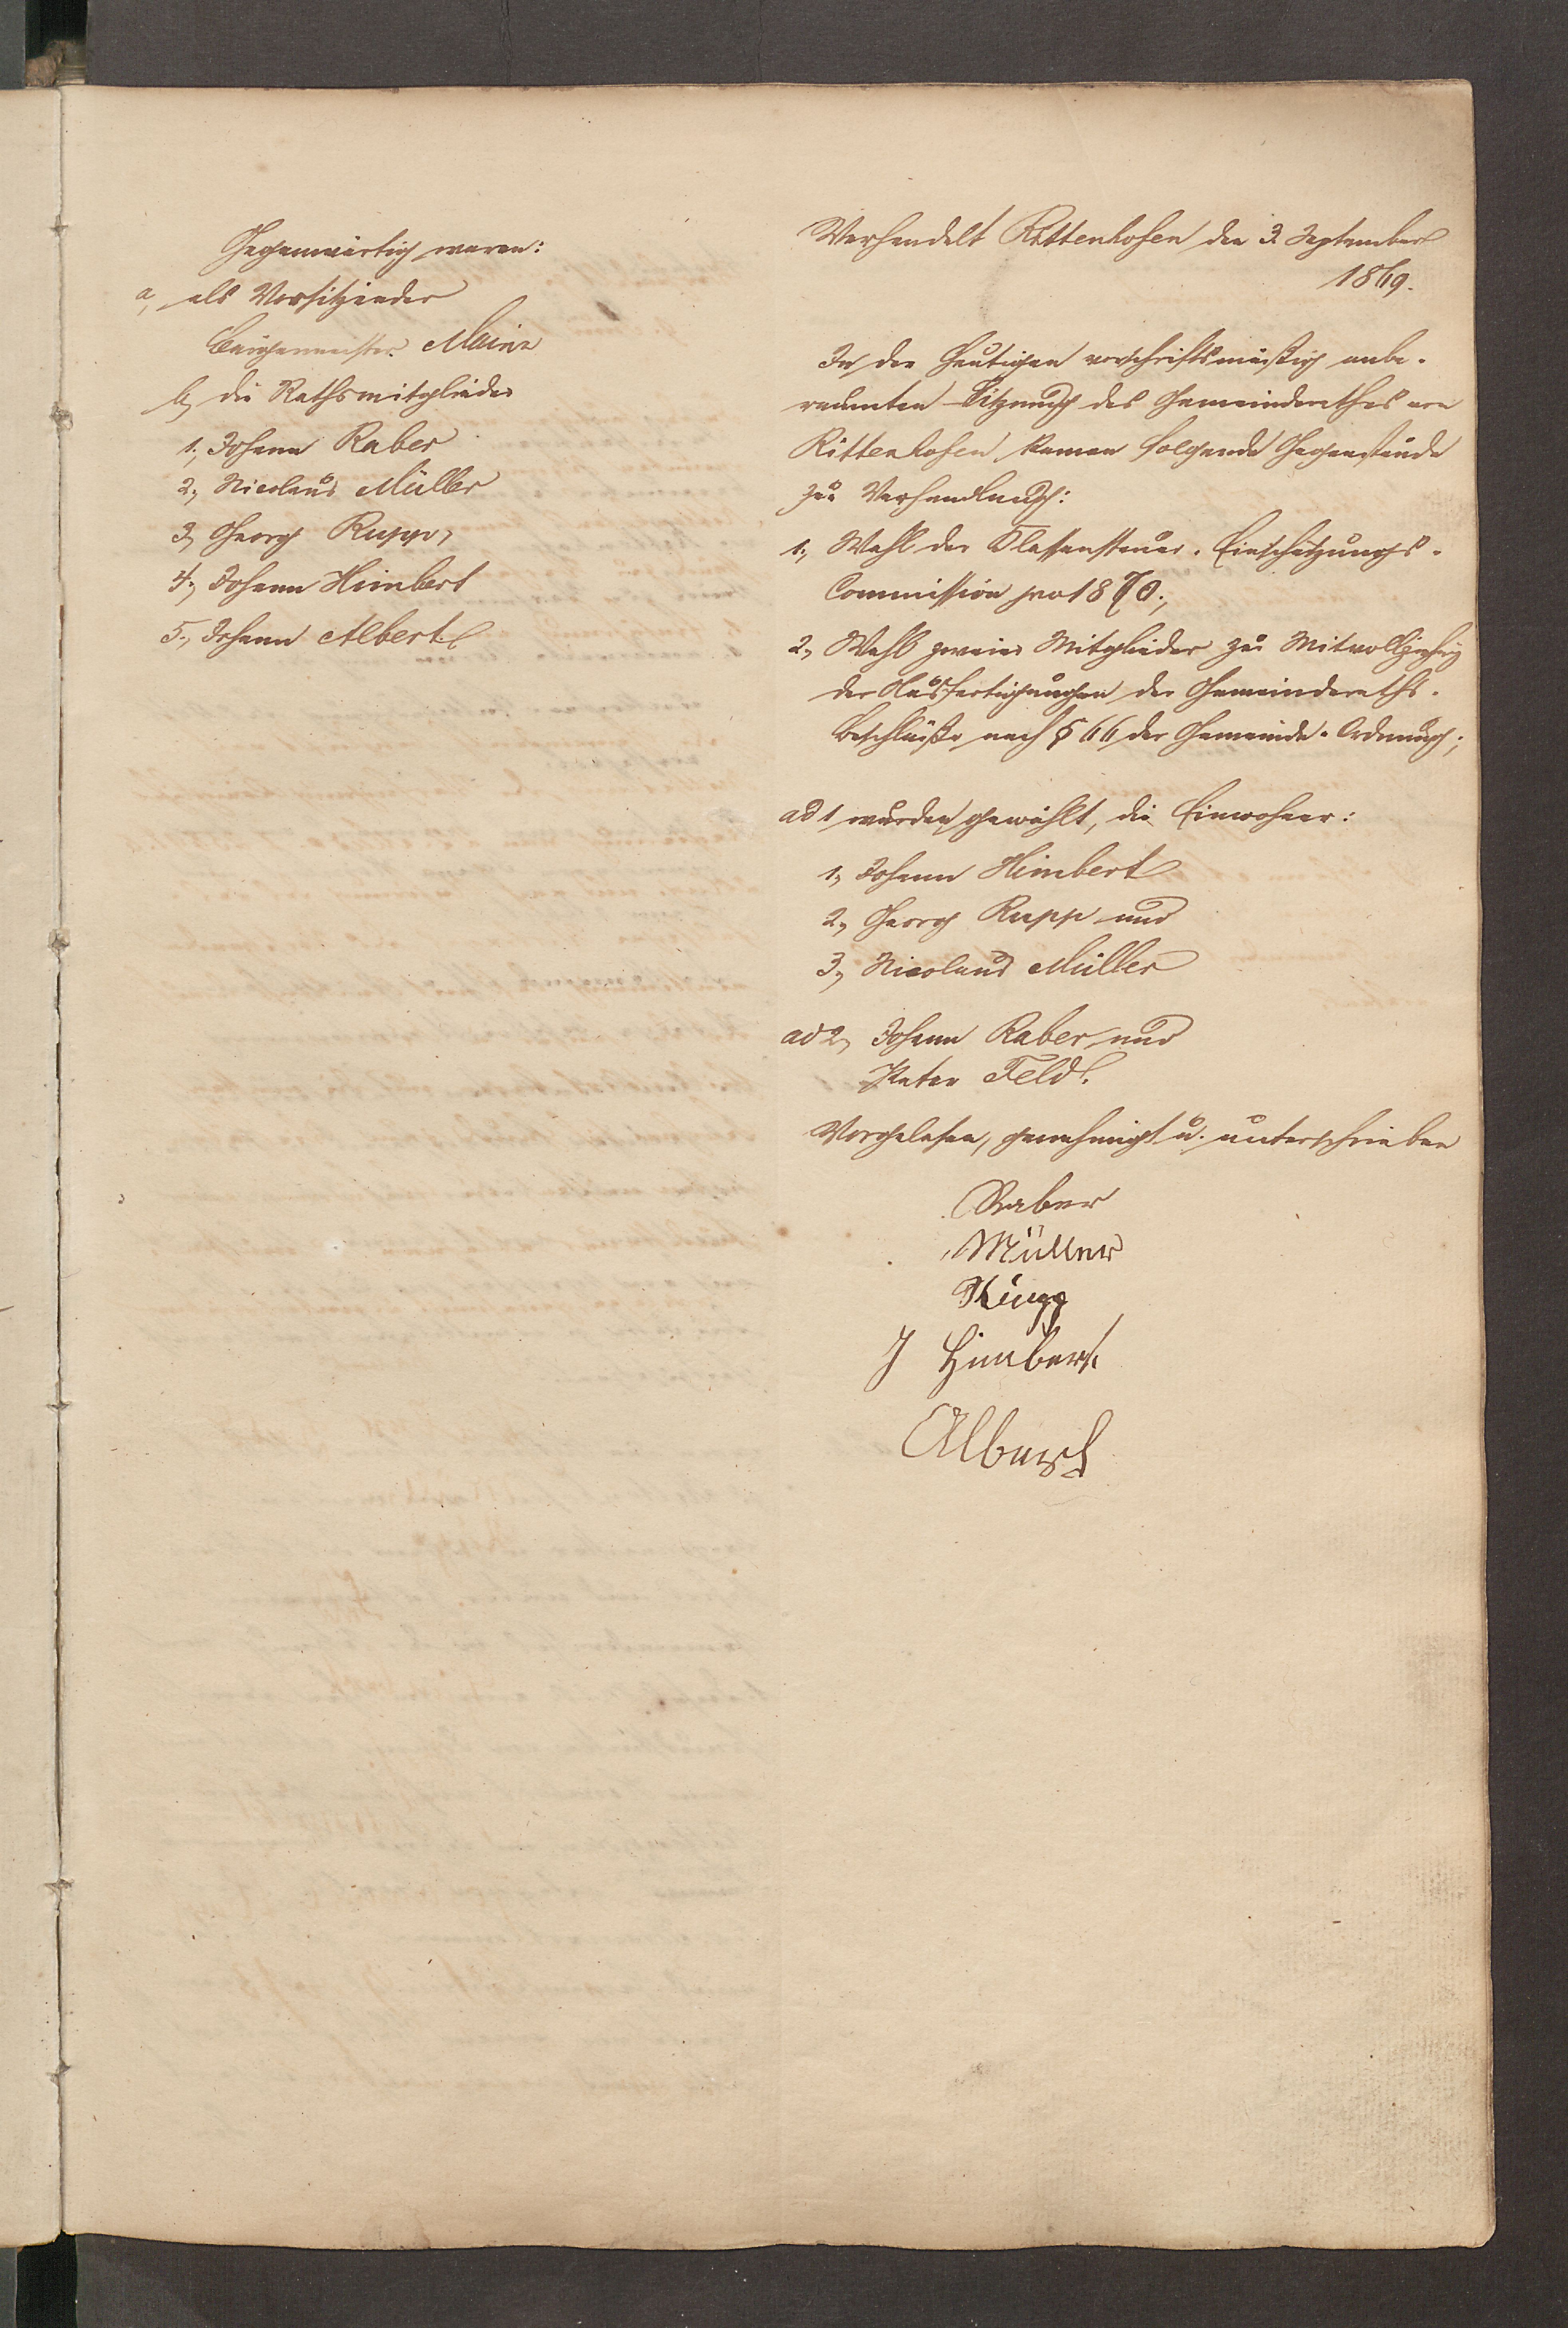 Gegenwärtig waren:
a, als Vorsitzender
Bürgermeister Mainz
b, die Rathsmitglieder
1, Johann Raber
2, Nicolaus Müller
3, Georg Rupp,
4, Johann Himbert
5, Johann Albert
Verhandelt Rittenhofen den 3. September
1869.
In der heutigen vorschriftsmäßig anbe-
raumten Sitzung des Gemeinderathes von
Rittenhofen kamen folgende Gegenstände
zur Verhandlung:
1, Wahl der Klassensteuer-Einschätzungs-
Commission pro 1870;
2, Wahl zweier Mitglieder zur Mitvollziehung
der Ausfertigungen der Gemeinderaths-
beschlüße nach § 66 der Gemeinde-Ordnung;
ad 1 wurden gewählt, die Einwohner:
1, Johann Himbert
2, Georg Rupp und
3, Nicolaus Müller
ad 2, Johann Raber und
Peter Feld.
Vorgelesen, genehmigt u. unterschrieben
Raber
Müller
Rupp
J Himbert
Albert